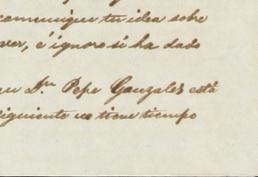 comunique tu idea sobre
ver, é ignoro si ha dado
que Dn Pepe Gonzalez está
siguiente no tiene tiempo